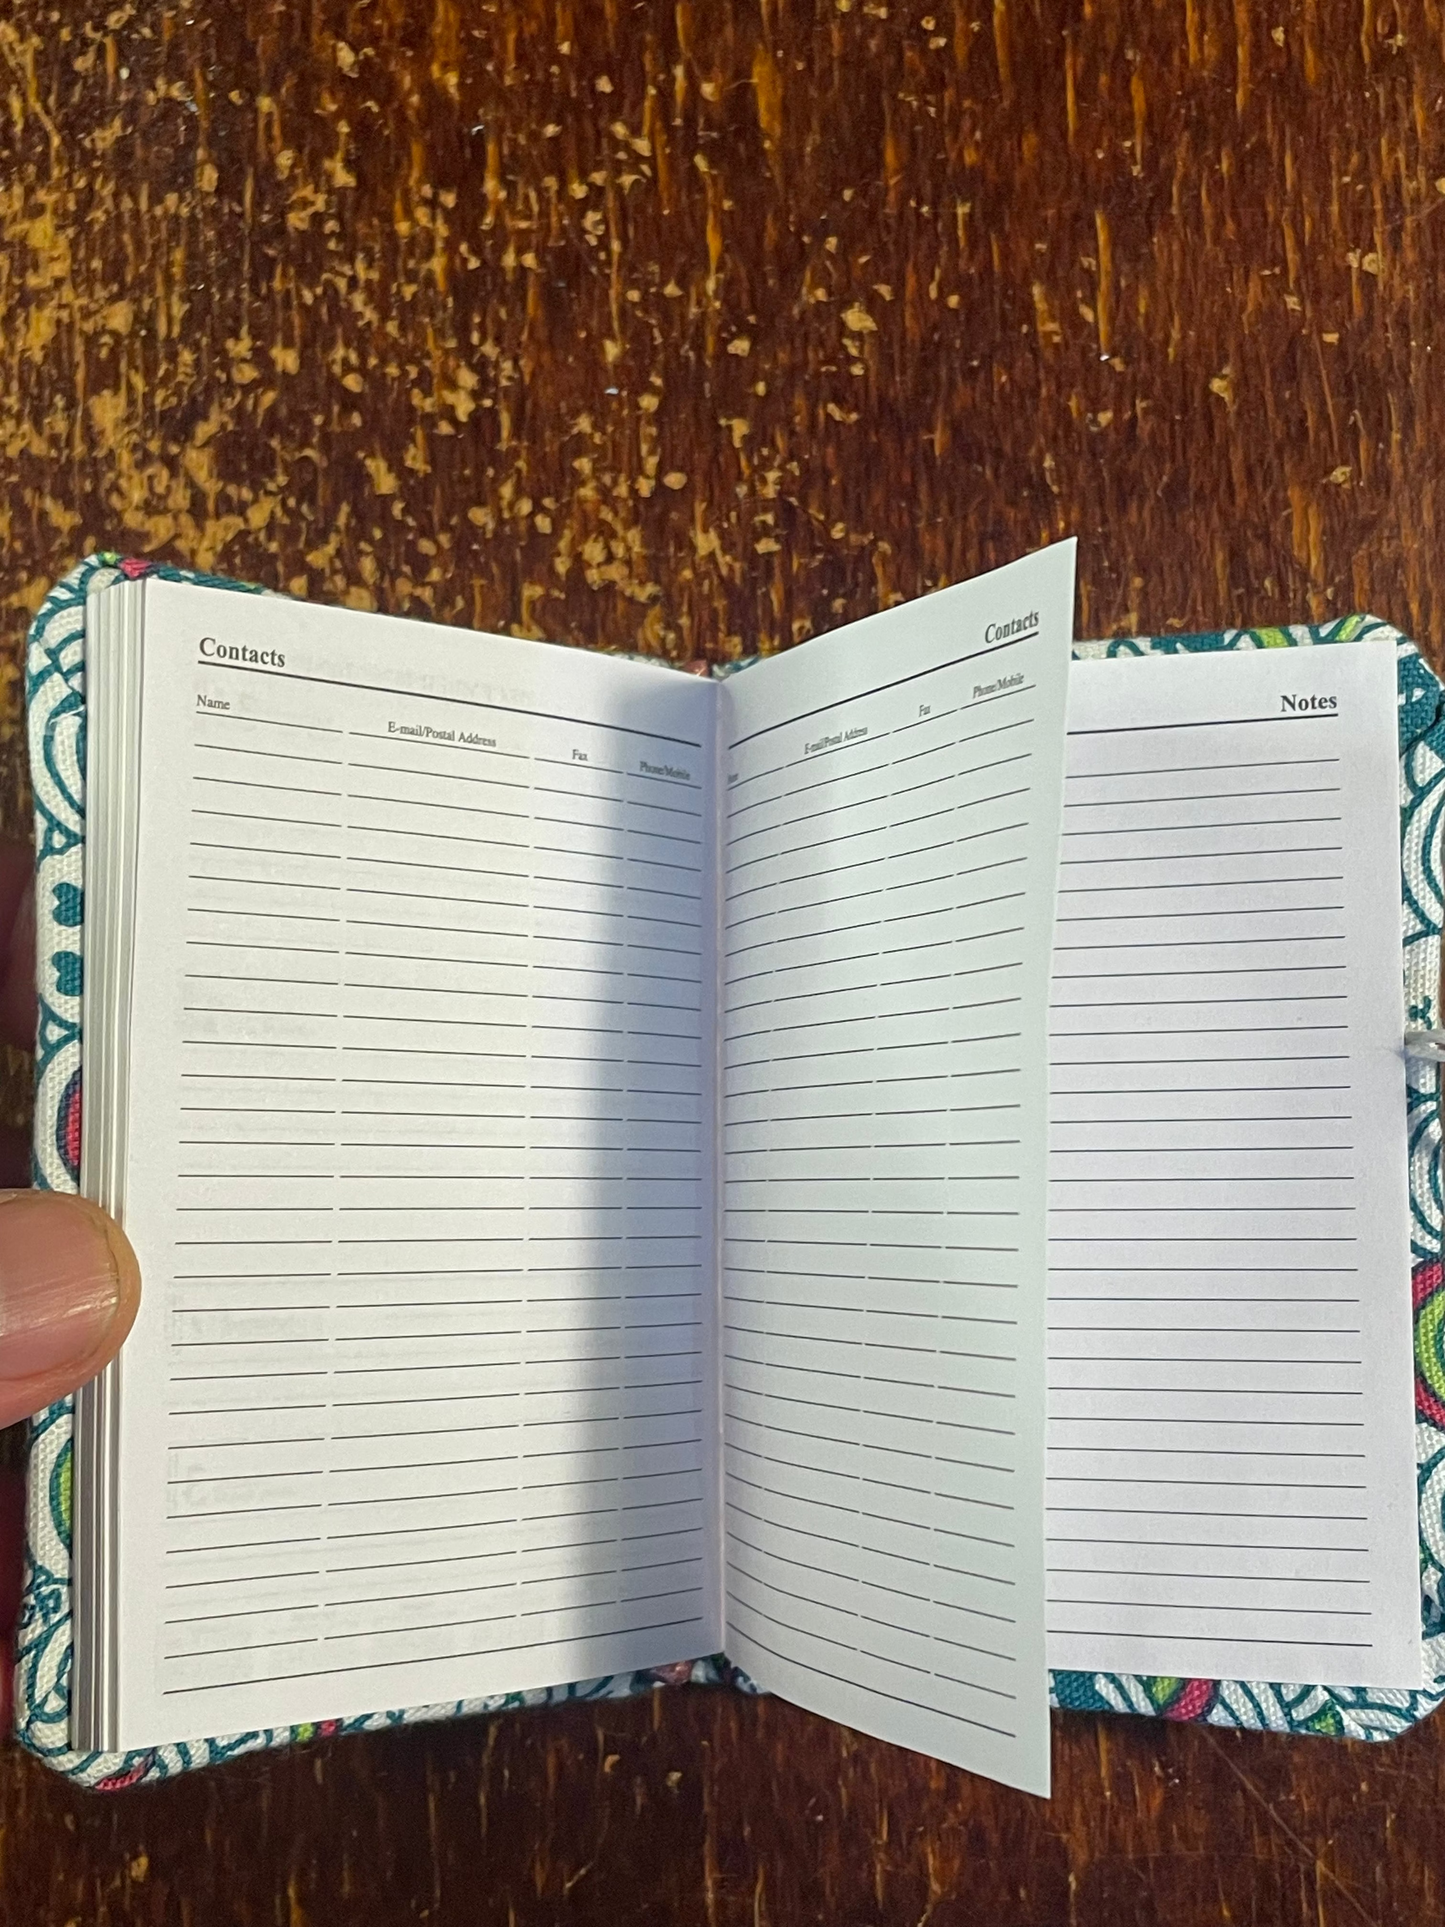 Contacts
Name E-mail/Postal Address Fax Phone/Mobile
Contacts
E-mail/Postal Address Fax Phone/Mobile
Notes